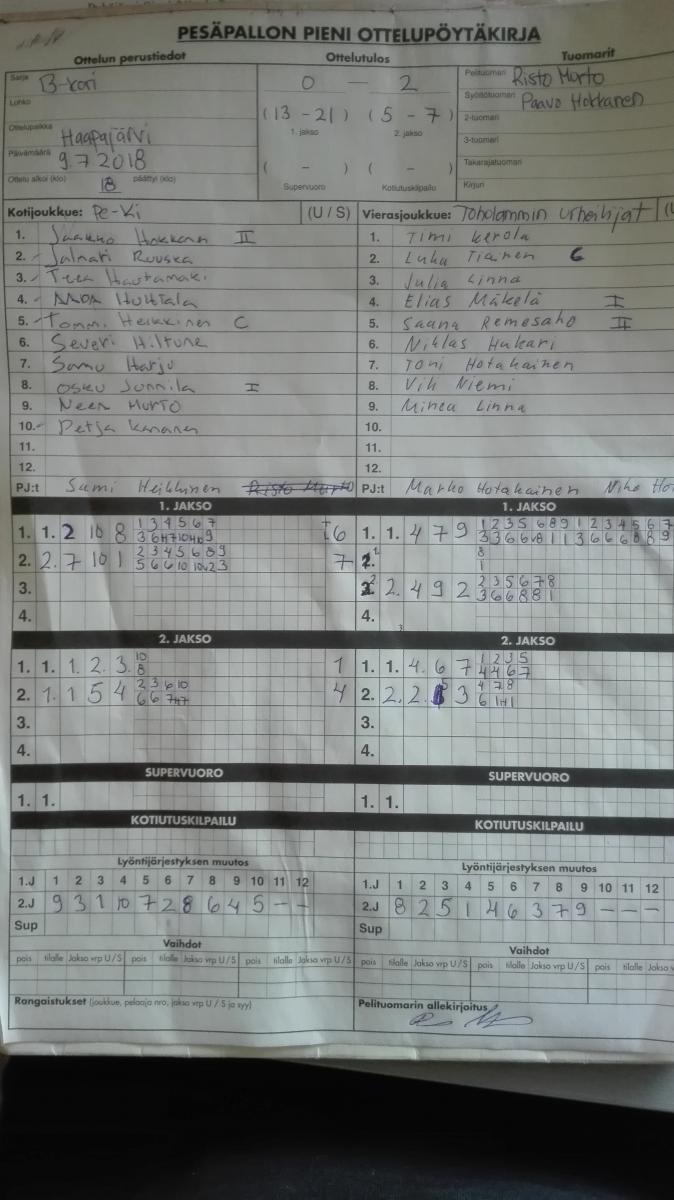 PESÄPALLON PIENI OTTELUPÖYTÄKIRJA
Ottelun perustiedot Ottelutulos Tuomarit
Sarja B-kori 0 - 2 Pelituomari Risto Murto
Lohko Syöttötuomari Paavo Hokkanen
(13 - 21) (5 - 7) 2-tuomari
1. jakso 2. jakso
Ottelupaikka Haapajärvi 3-tuomari
Päivämäärä 9.7.2018 ( - ) ( - ) Takarajatuomari
Ottelu alkoi (klo) 18 päättyi (klo) Supervuoro Kotiutuskilpailu Kirjuri
Kotijoukkue: Pe-Ki (U / S) Vierasjoukkue: Toholammin Urheilijat
1. Jaakko Hakkanen II 1. Timi Kerola
2. Jalmari Ruuska 2. Luka Tiainen C
3. Hautamäki 3. Julia Linna
4. Huhtala 4. Elias Mäkelä I
5. Tommi Heikkinen C 5. Saana Remesaho II
6. Severi Hiltune 6. Niklas Hukari
7. Samu Harju 7. Toni Hotakainen
8. Osku Junnila I 8. Vili Niemi
9. Neea Murto 9. Minea Linna
10. Petja Kananen 10.
11. 11.
12. 12.
PJ:t Sami Heikkinen Risto Murto PJ:t Marko Hotakainen Niko
1. JAKSO 1. JAKSO
1. 1. 2 10 8 1 3 4 5 6 7 6 1. 1. 4 7 9 1 2 3 5 6 8 9 1 2 3 4 5 6 7
2. 2. 7 10 1 2 3 4 5 6 8 9 7 2. 8
3. 2. 4 9 2 2 3 5 6 7 8
4. 4.
2. JAKSO 2. JAKSO
1. 1. 1. 2. 3. 10 1 1. 1. 4. 6 7 1 2 3 5
8 4 4 6 7
2. 1. 1 5 4 2 3 6 10 4 2. 2. 2. 5 3 4 7 8
3. 3.
4. 4.
SUPERVUORO SUPERVUORO
1. 1. 1. 1.
KOTIUTUSKILPAILU KOTIUTUSKILPAILU
Lyöntijärjestyksen muutos Lyöntijärjestyksen muutos
1.J 1 2 3 4 5 6 7 8 9 10 11 12 1.J 1 2 3 4 5 6 7 8 9 10 11 12
2.J 9 3 1 10 7 2 8 6 4 5 - - 2.J 8 2 5 1 4 6 3 7 9 - - -
Sup Sup
Vaihdot Vaihdot
pois tilalle Jakso vrp U/S pois tilalle Jakso vrp U/S pois tilalle Jakso vrp U/S pois tilalle Jakso vrp U/S pois tilalle Jakso vrp U/S pois tilalle Jakso
Rangaistukset (joukkue, pelaaja nro, jakso vrp U / S ja syy) Pelituomarin allekirjoitus